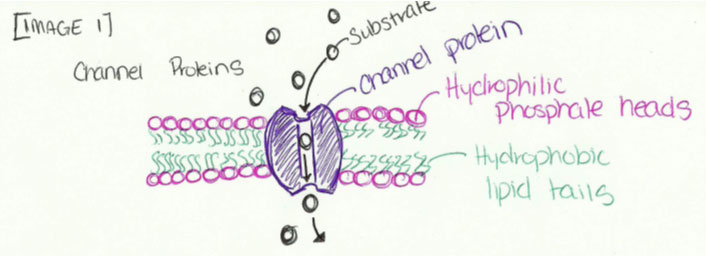 [IMAGE 1]
Channel Proteins
Substrate
Channel protein
Hydrophilic
Phosphate heads
Hydrophobic
lipid tails